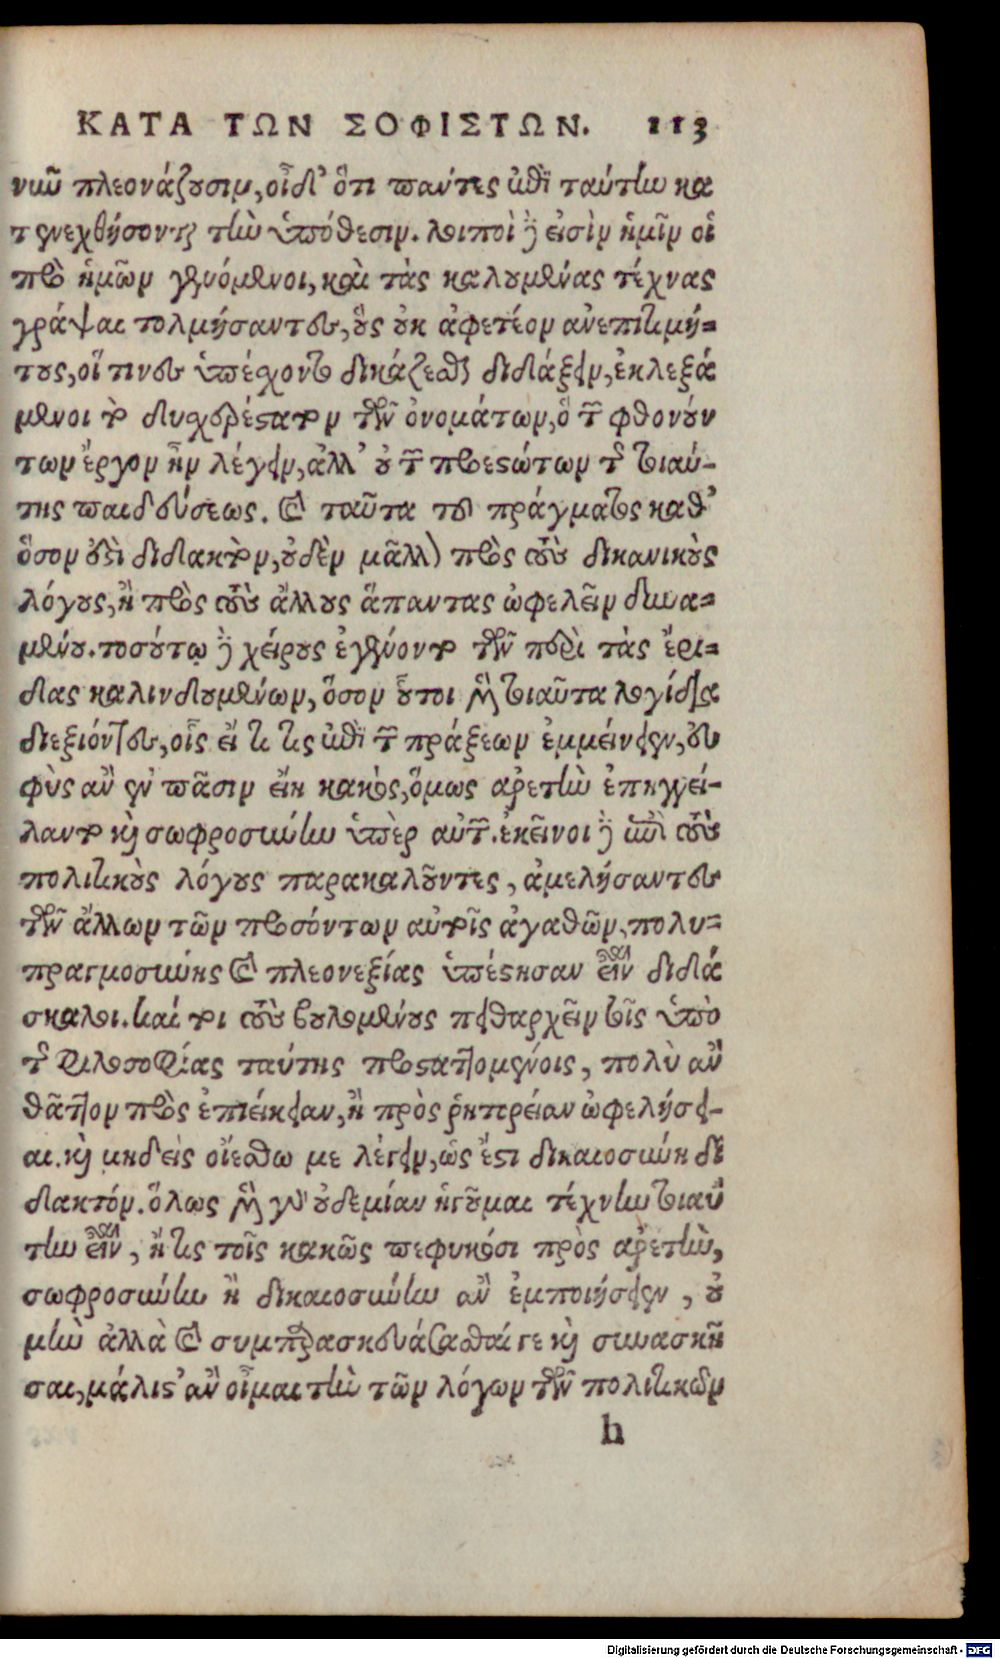 ΚΑΤΑ ΤΩΝ ΣΟΦΙΣΤΩΝ. 113
νῦν πλεονάζουσιν, οἶδ' ὅτι πάντες ἐπὶ ταύτην κα
τενεχθήσονται τὴν ὑπόθεσιν. λοιποὶ δ' εἰσὶν ἡμῖν οἱ
πρὸ ἡμῶν γενόμενοι, καὶ τὰς καλουμένας τέχνας
γράψαι τολμήσαντες, οὓς οὐκ ἀφετέον ἀνεπιτιμή-
τους, οἵ τινες ὑπέσχοντο δικάζεσθαι διδάξειν, ἐκλεξά
μενοι τὸ δυσχερέστατον τῶν ὀνομάτων, ὃ τῶν φθονούν
των ἔργον ἦν λέγειν, ἀλλ' οὐ τῶν προεστώτων τῆς τοιαύ-
της παιδεύσεως. καὶ ταῦτα τοῦ πράγματος καθ'
ὅσον ἐστὶ διδακτὸν, οὐδὲν μᾶλλον πρὸς τοὺς δικανικοὺς
λόγους, ἢ πρὸς τοὺς ἄλλους ἅπαντας ὠφελεῖν δυνα-
μένου. τοσούτῳ δὲ χείρους ἐγένοντο τῶν περὶ τὰς ἔρι-
δας καλινδουμένων, ὅσον οὗτοι μὲν τοιαῦτα λογίδια
διεξιόντες, οἷς εἴ τις ἐπὶ τῶν πράξεων ἐμμείνειεν, εὐ
θὺς ἂν ἐν πᾶσιν εἴη κακοῖς, ὅμως ἀρετὴν ἐπηγγεί-
λαντο καὶ σωφροσύνην ὑπὲρ αὐτῶν. ἐκεῖνοι δ' ἐπὶ τοὺς
πολιτικοὺς λόγους παρακαλοῦντες, ἀμελήσαντες
τῶν ἄλλων τῶν προσόντων αὐτοῖς ἀγαθῶν, πολυ-
πραγμοσύνης καὶ πλεονεξίας ὑπέστησαν εἶναι διδά
σκαλοι. καί τοι τοὺς βουλομένους πειθαρχεῖν τοῖς ὑπὸ
τῆς φιλοσοφίας ταύτης προσταττομένοις, πολὺ ἂν
θᾶττον πρὸς ἐπιείκειαν, ἢ πρὸς ῥητορείαν ὠφελήσει-
αι. καὶ μηδεὶς οἰέσθω με λέγειν, ὡς ἔστι δικαιοσύνη δι
δακτόν. ὅλως μὲν γὰρ οὐδεμίαν ἡγοῦμαι τέχνην τοιαύ
την εἶναι, ἥ τις τοῖς κακῶς πεφυκόσι πρὸς ἀρετὴν,
σωφροσύνην ἢ δικαιοσύνην ἂν ἐμποιήσειεν, οὐ
μὴν ἀλλὰ καὶ συμπαρασκευάσασθαί γε καὶ συνασκῆ
σαι, μάλιστ' ἂν οἶμαι τὴν τῶν λόγων τῶν πολιτικῶν
h
Digitalisierung gefördert durch die Deutsche Forschungsgemeinschaft - DFG